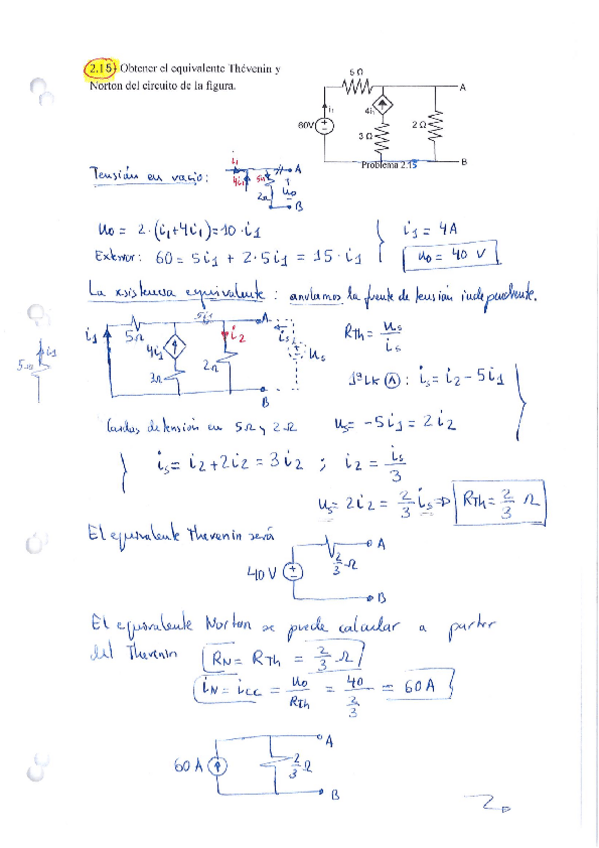 2.15 Obtener el equivalente Thévenin y
Norton del circuito de la figura.
5 Ω
A
i1
4i1
60V
3 Ω
2 Ω
B
Problema 2.15
Tensión en vacío:
i1
4i1
5i1
2Ω
A
u0
B
u0 = 2·(i1+4i1)=10·i1
Exterior: 60 = 5i1 + 2·5i1 = 15·i1
i1 = 4A
u0 = 40 V
La resistencia equivalente: anulamos la fuente de tensión independiente.
5Ω
i1
i1
5Ω
4i1
3Ω
5i1
i2
2Ω
A
B
is
us
RTh = us/is
1ªLK (A): is = i2 - 5i1
Caídas de tensión en 5Ω y 2Ω
us = -5i1 = 2i2
is = i2 + 2i2 = 3i2 ; i2 = is/3
us = 2i2 = 2/3 is ⇒ RTh = 2/3 Ω
El equivalente Thevenin será
40 V
2/3 Ω
A
B
El equivalente Norton se puede calcular a partir
del Thevenin
RN = RTh = 2/3 Ω
iN = icc = u0/RTh = 40/(2/3) = 60 A
60 A
2/3 Ω
A
B